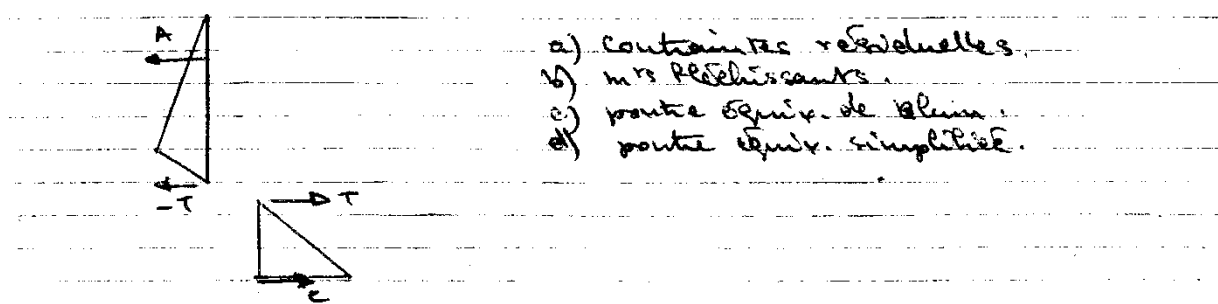 A
a) contraintes résiduelles.
b) mts fléchissants.
c) poutre équiv. de Blum.
d) poutre équiv. simplifiée.
-T
T
C